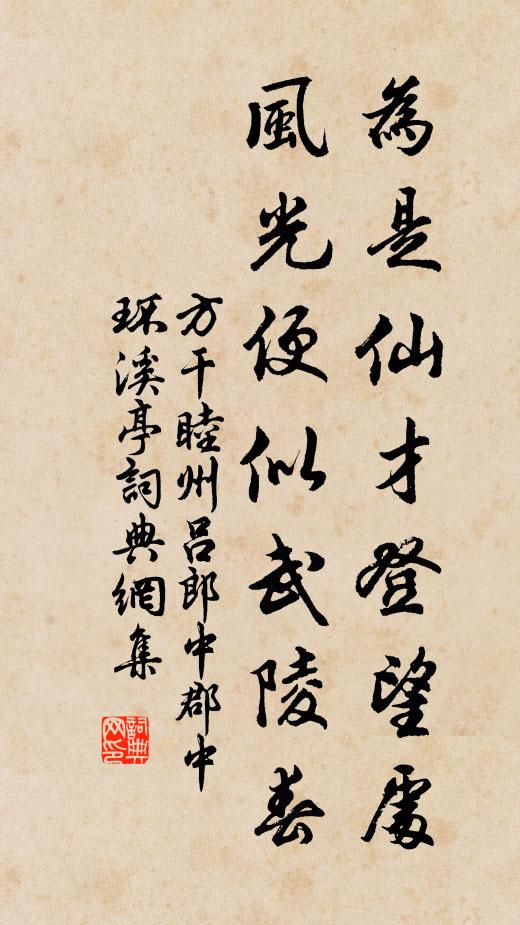 為是仙才登望處
風光便似武陵春
方干睦州呂郎中郡中
環溪亭詞典網集
詞典
网印